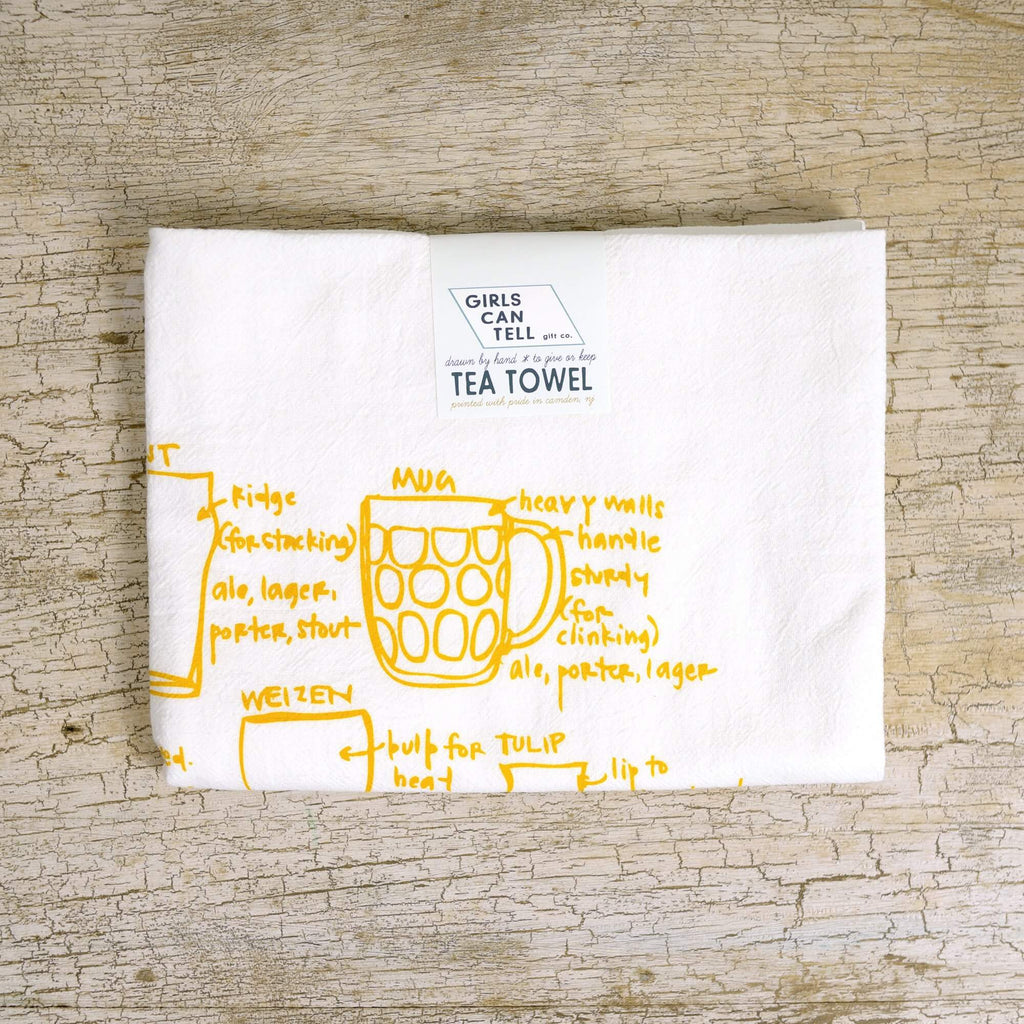 GIRLS
CAN
TELL gift co.
drawn by hand * to give or keep
TEA TOWEL
printed with pride in camden, nj
MUG
Ridge
(for stacking)
ale, lager,
porter, stout
heavy walls
handle
sturdy
(for
clinking)
ale, porter, lager
WEIZEN
bulb for
head
TULIP
lip to